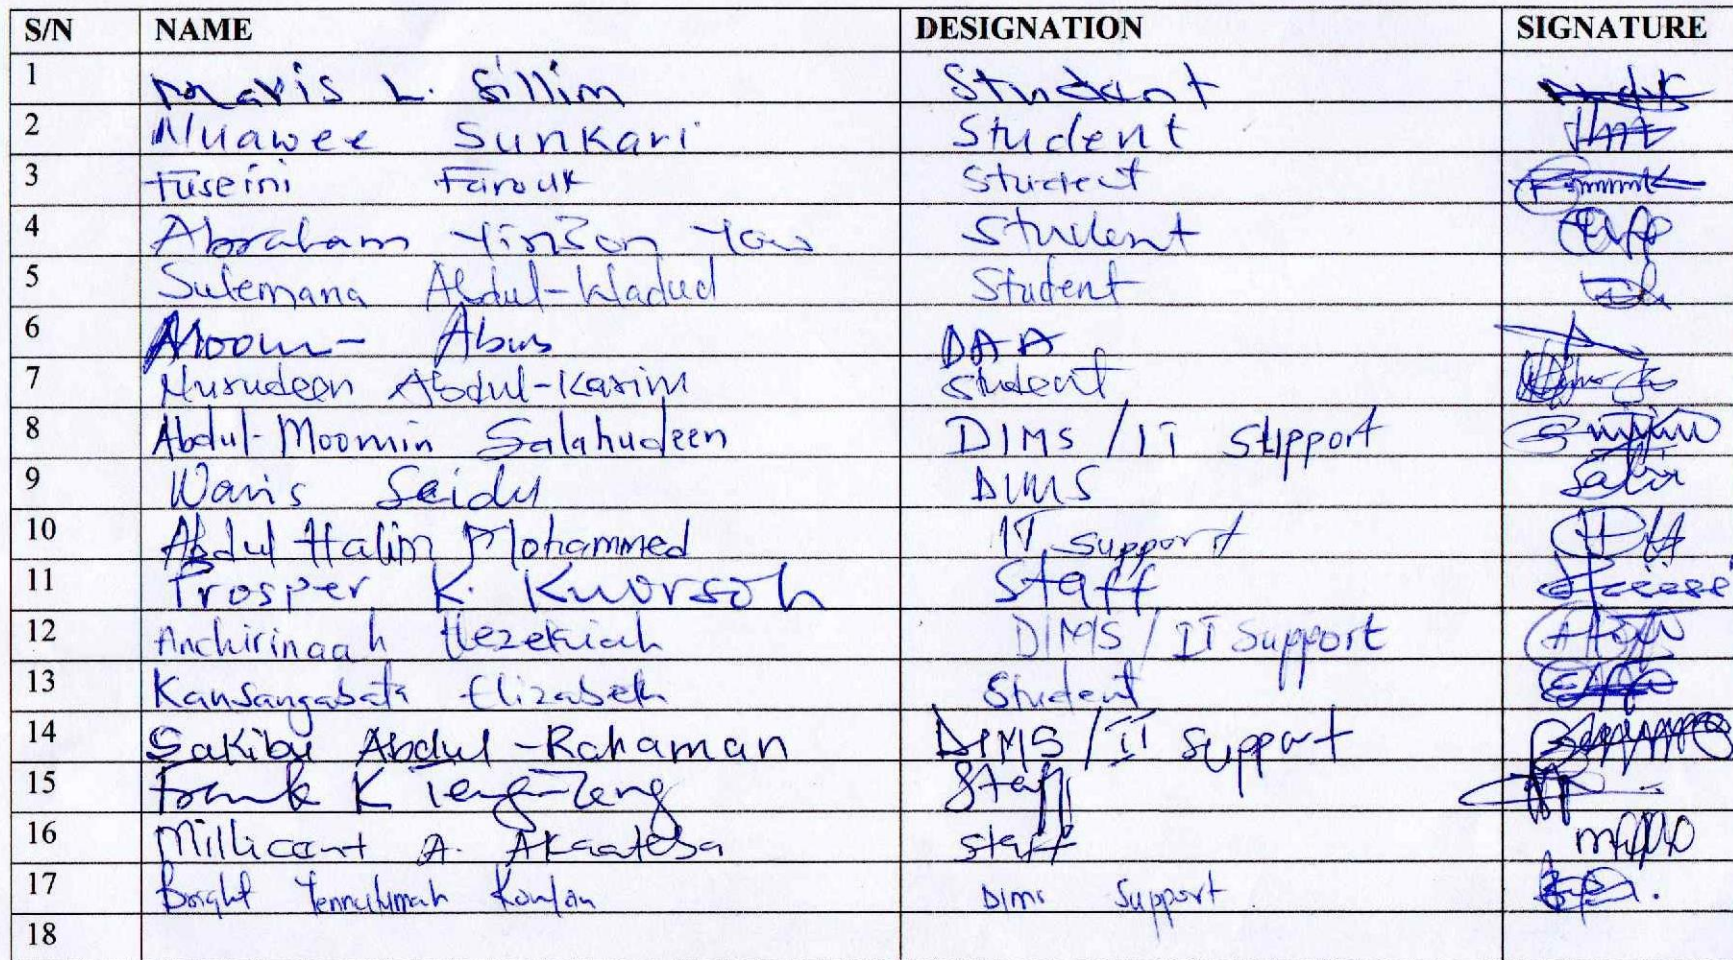 S/N NAME DESIGNATION SIGNATURE
1 Mavis L. Sillim Student
2 Muawee Sunkari Student
3 Fuseini Farouk Student
4 Abraham Yinson Yaw Student
5 Sulemana Abdul-Wadud Student
6 DAA
7 Nurudeen Abdul-Karim Student
8 Abdul-Moomin Salahudeen DIMS / IT Support
9 Waris Seidu DIMS
10 Abdul Halim Mohammed IT support
11 Prosper K. Kuorsoh Staff
12 Anchirinaah Hezekiah DIMS / IT Support
13 Elizabeth Student
14 Sakibu Abdul-Rahaman DIMS / IT Support
15 Frank K Teng-Zeng Staff
16 Millicent A. Akaateba staff
17 Bright Dims Support
18